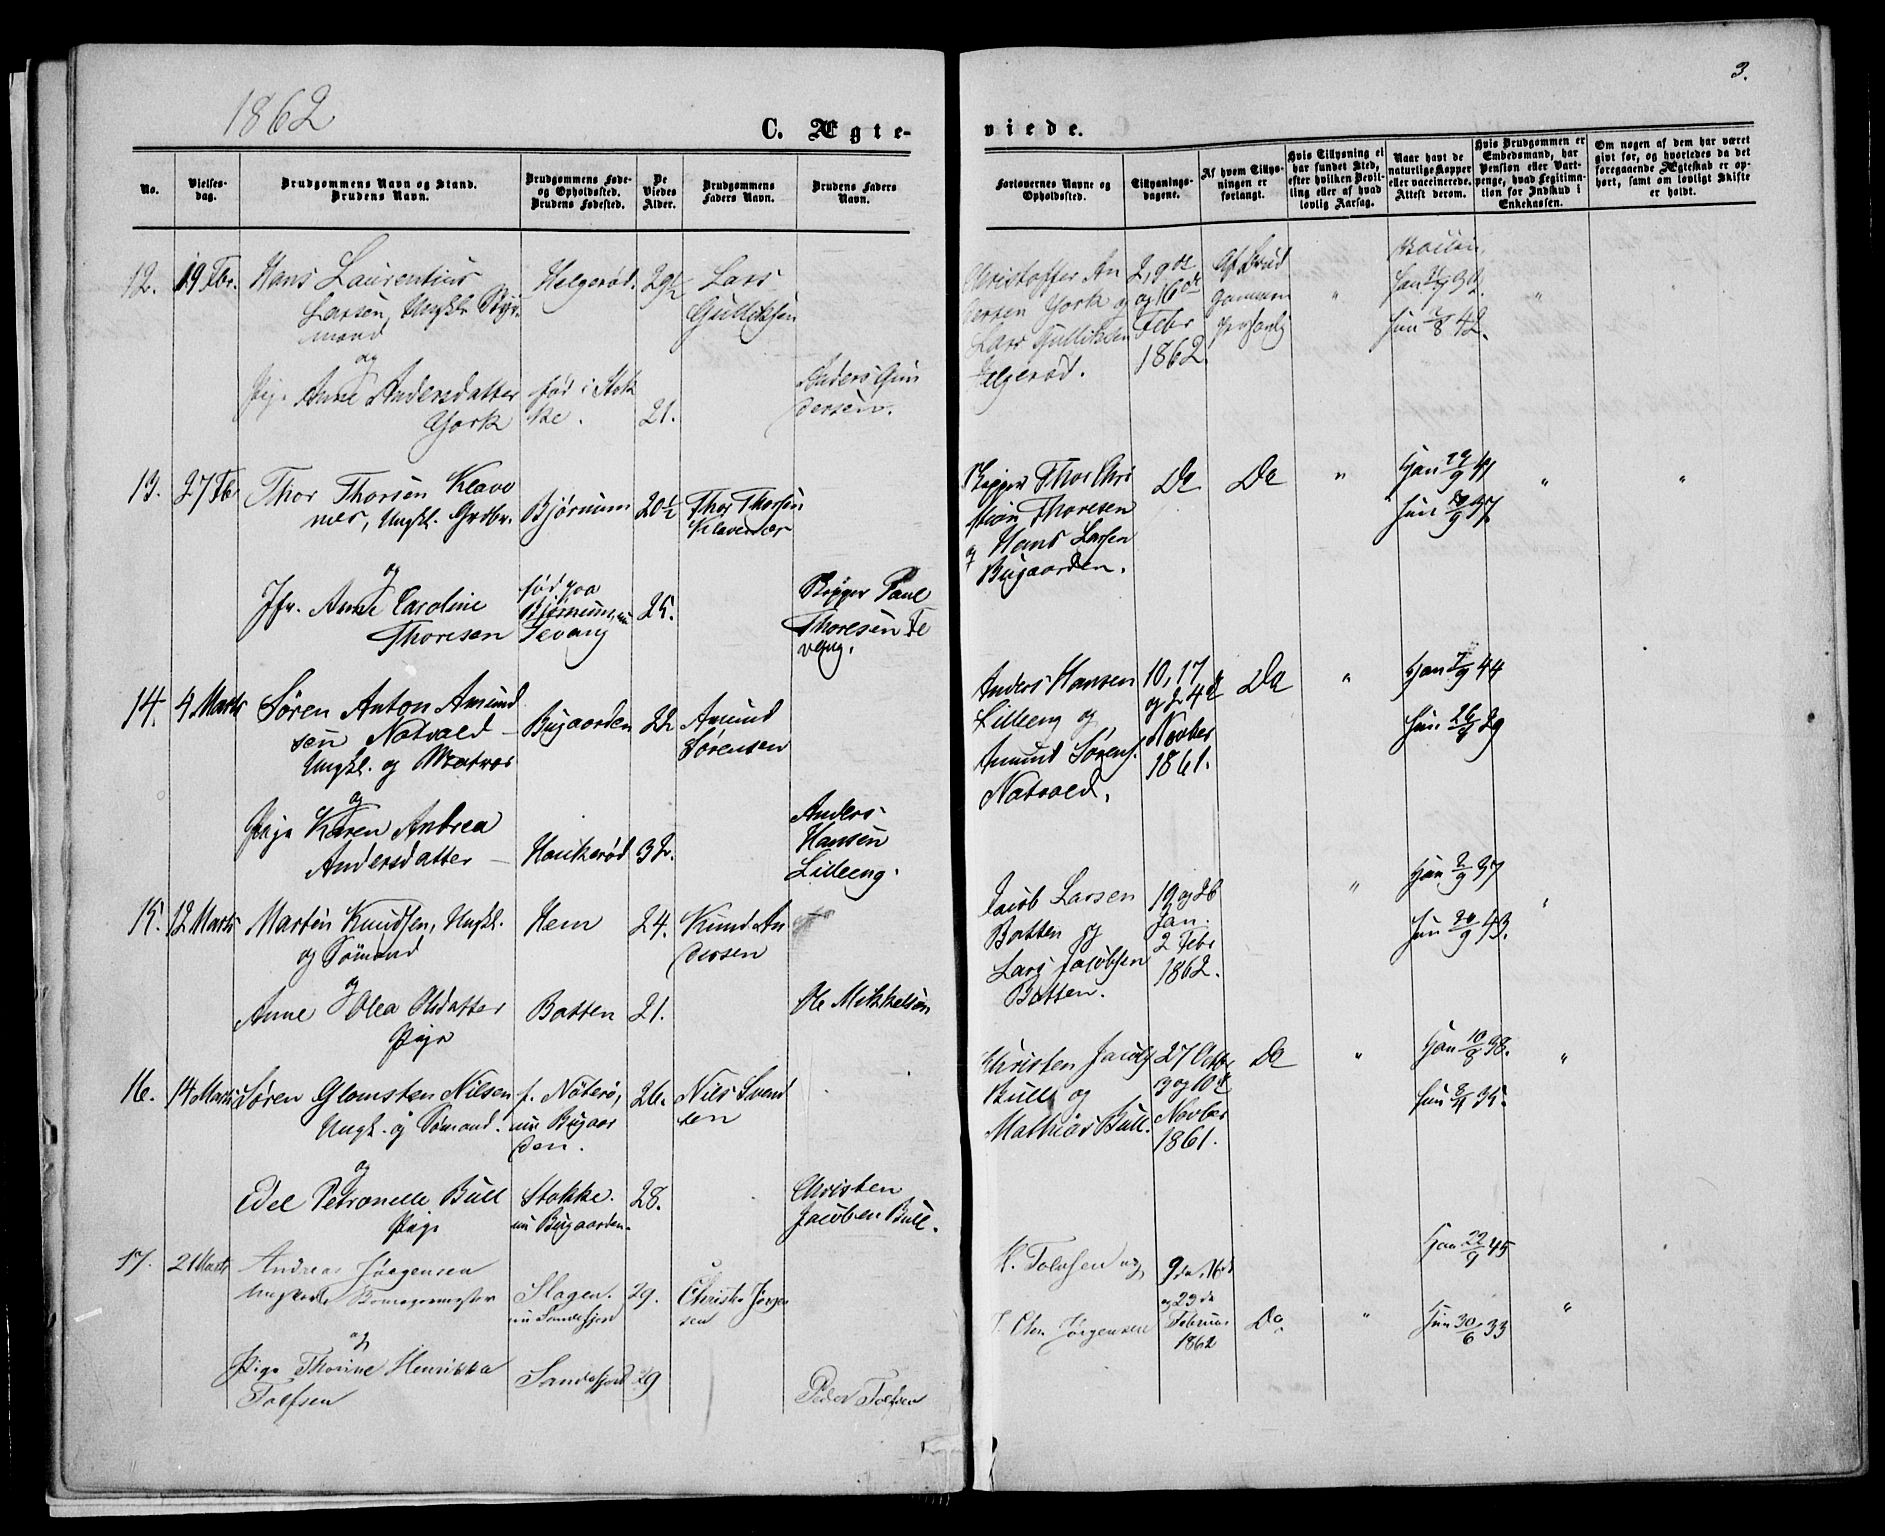 1862
3.
C. Ægte-
viede.
No.
Vielses-
dag.
Brudgommens Navn og Stand.
Brudens Navn.
Brudgommens Føde-
og Opholdssted.
Brudens Fødested.
De
Viedes
Alder.
Brudgommens
Faders Navn.
Brudens Faders
Navn.
Forlovernes Navne og
Opholdssted.
Tillysnings-
dagene.
Af hvem Tillys-
ningen er
forlangt.
Hvis Tillysning ei
har fundet Sted,
efter hvilken Bevil-
ling eller af hvad
lovlig Aarsag.
Naar havt de
naturlige Kopper
eller vaccinerede.
Attest derom.
Hvis Brudgommen er
Embedsmand, har
Pension eller Vart-
penge, hvad Legitima-
tion for Indskud i
Enkekassen.
Om nogen af dem har været
givt før, og hvorledes da det
foregaaende Ægteskab er op-
hørt, samt om lovligt Skifte
er holdt.
12. 19 Fbr. Hans Laurentius
Larsen, Ungkl.
mand
og
Pige Anne Andersdatter
York
Helgerød.
født i Stok
ke.
29½
21.
Lars
Gulliksen
Anders Gun
dersen.
Christoffer An
dersen York og
Lars Gulliksen
Helgerød.
2, 9de
og 16de
Febr
1862.
Af Brud
gommen
Han
Hun 42.
13. 27 Fb Thor Thorsen Klave
nes, Ungkl. Grdbr.
og
Jfr. Anne Caroline
Thoresen
Bjørnum
født paa
Bjørnum, nu
Fevang
20½
25.
Thor Thorsen
Klavenæs
Skipper Paul
Thoresen Fe
vang.
Skipper Thor Chri
stian Thoresen
og Hans Larsen
Bugaarden.
Do Do "
Han
Hun 37
"
14. 4 Marts Søren Anton Amund
sen Natvald -
Ungkl. og Matros
og
Pige Karen Andrea
Andersdatter -
Bugaarden
Haukerød
22
32.
Amund
Sørensen
Anders
Hansen
Lilleeng.
Anders Hansen
Lilleeng og
Amund Sørens.
Natvald.
10, 17
og 24d
Novber
1861.
Do "
Han 7/9 44
Hun 29
15. 12 Marts Martin Knudsen, Ungkl.
og Sømand
og
Anne Olea Olsdatter
Pige
Hem
Botten
24.
21.
Knud An
dersen
Ole Mikkelsen
Jacob Larsen
Botten og
Lars Jacobsen
Botten.
19 og 26
Jan.
2 Febr
1862.
"
Han 2/9 37
Hun 43.
16. 14 Marts Søren Glomsten Nilsen
Ungk. og Sømand.
og
Edel Petronelle Bull
Pige
f. Nøterø,
nu Bugaar
den.
Stokke.
nu Bugaarden.
26.
28.
Nils Svend
sen
Christen
Jacobsen Bull.
Christen Jacobs
Bull og
Mathias Bull.
27 Octbr
3 og 10d
Novber
1861.
Do "
Han 10/8 38.
Hun 35.
"
17. 21 Marts Andreas Jørgensen
Ungkarl,
og
Pige Thorine Henrikka
Tolfsen
Slagen.
nu Sandefjord
Sandefjord
29.
29
Christo Jørgen
sen
Peder Tolfsen
H. Tolvsen og
Olen Jørgensen
9de, 16de
og 23de
Februar
1862
Do "
Han 22/9 45
Hun 30/6 33
"